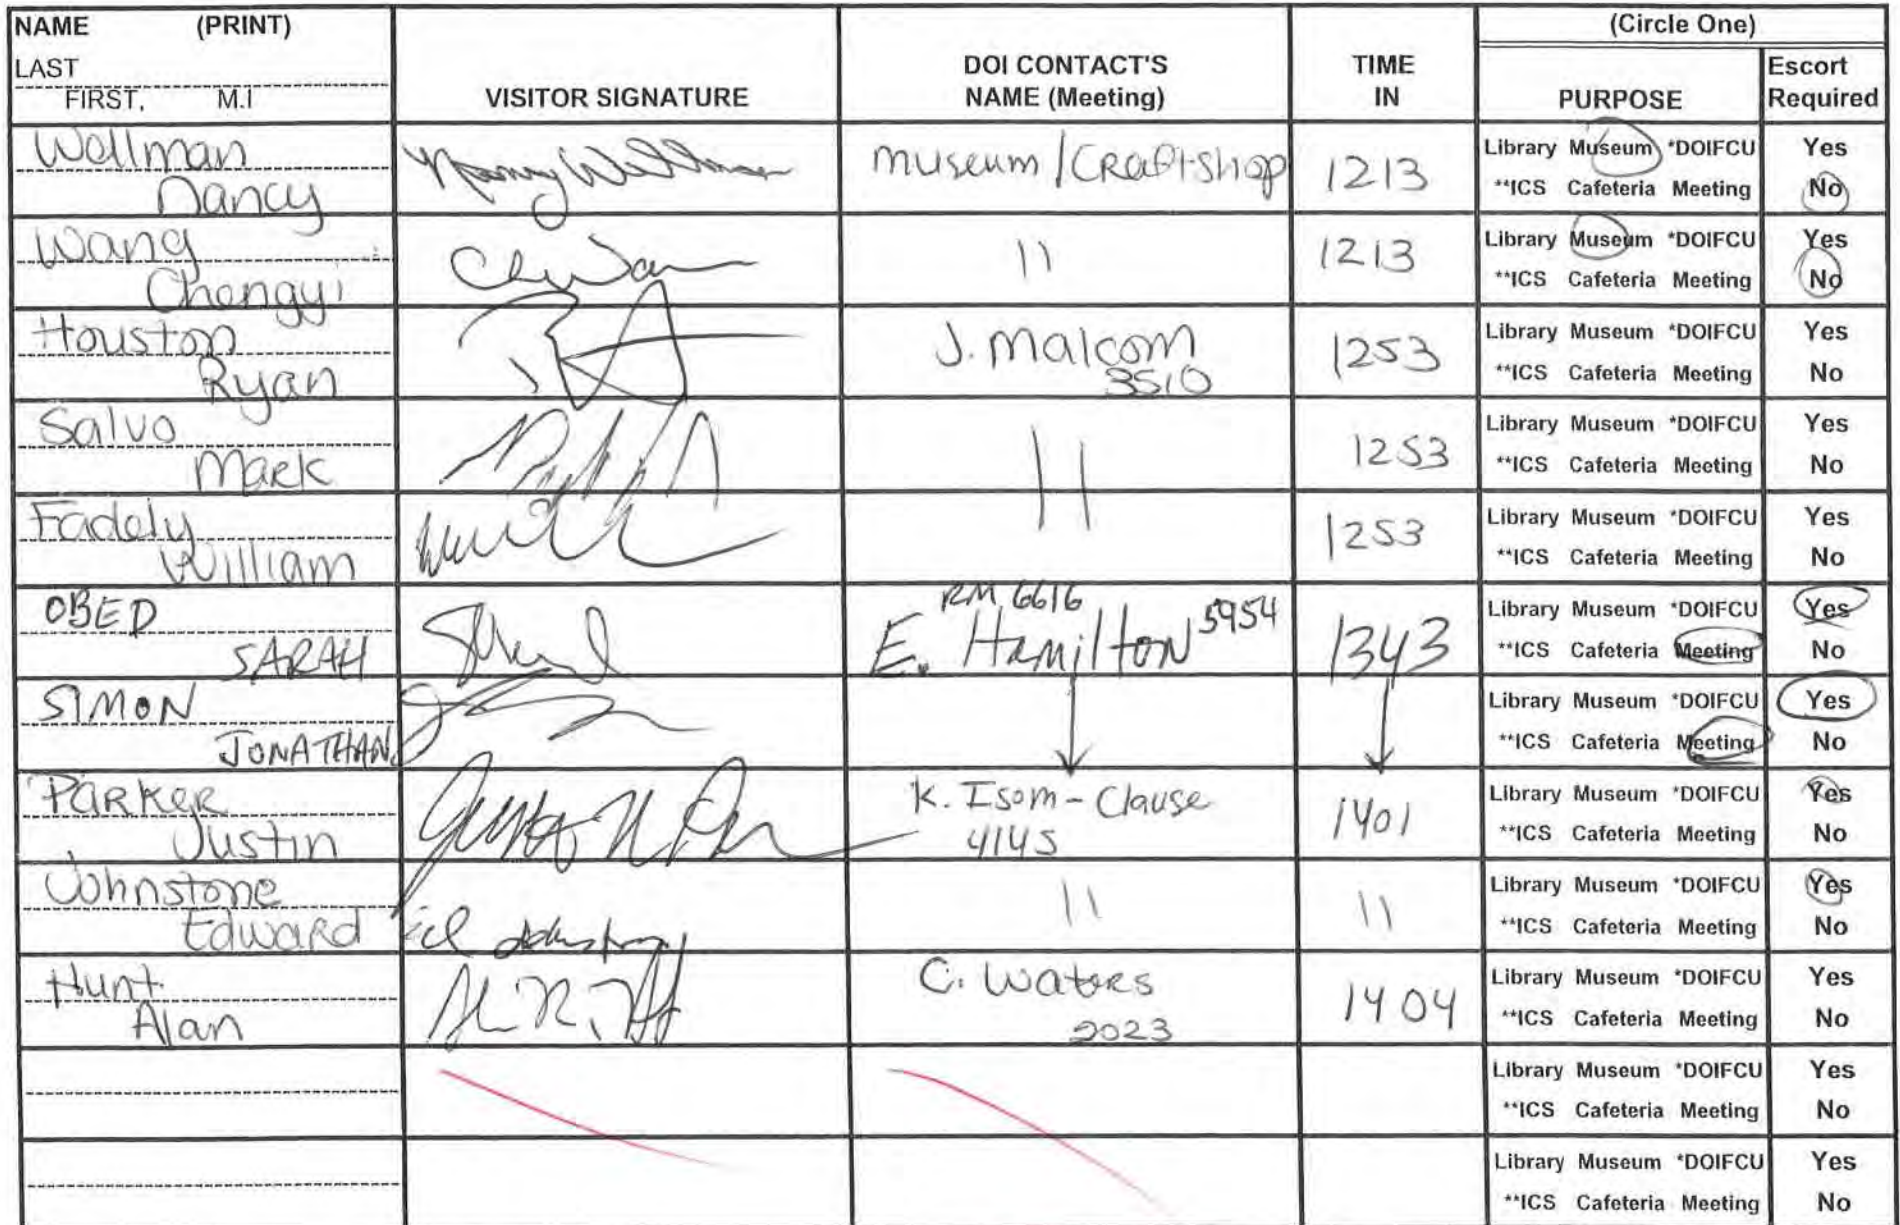 NAME (PRINT)
LAST
FIRST, M.I
VISITOR SIGNATURE
DOI CONTACT'S
NAME (Meeting)
TIME
IN
(Circle One)
PURPOSE
Escort
Required
Wellman
Nancy
Nancy Wellman
museum/Craftshop
1213
Library Museum *DOIFCU
**ICS Cafeteria Meeting
Yes
No
Wang
Chengyi
11
1213
Library Museum *DOIFCU
**ICS Cafeteria Meeting
Yes
No
Houston
Ryan
J. Malcom
3510
1253
Library Museum *DOIFCU
**ICS Cafeteria Meeting
Yes
No
Salvo
Mark
11
1253
Library Museum *DOIFCU
**ICS Cafeteria Meeting
Yes
No
Fadely
William
1253
Library Museum *DOIFCU
**ICS Cafeteria Meeting
Yes
No
OBED
SARAH
RM 6616
E. Hamilton 5954
1343
Library Museum *DOIFCU
**ICS Cafeteria Meeting
Yes
No
SIMON
JONATHAN
Library Museum *DOIFCU
**ICS Cafeteria Meeting
Yes
No
Parker
Justin
K. Isom-Clause
4145
1401
Library Museum *DOIFCU
**ICS Cafeteria Meeting
Yes
No
Johnstone
Edward
11
11
Library Museum *DOIFCU
**ICS Cafeteria Meeting
Yes
No
Hunt
Alan
C. Waters
2023
1404
Library Museum *DOIFCU
**ICS Cafeteria Meeting
Yes
No
Library Museum *DOIFCU
**ICS Cafeteria Meeting
Yes
No
Library Museum *DOIFCU
**ICS Cafeteria Meeting
Yes
No